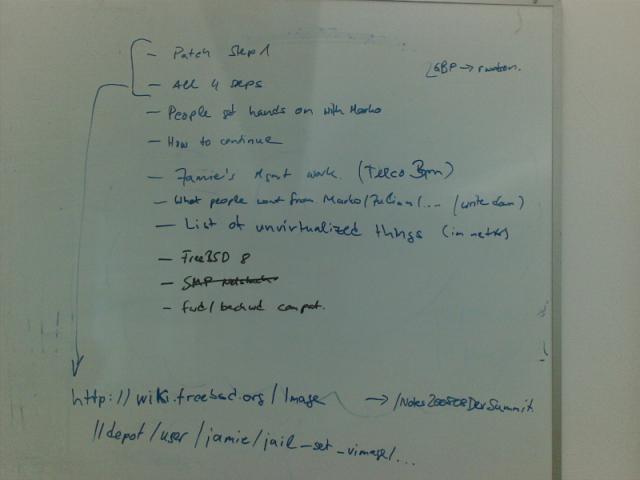 - Patch Step 1
- All 4 steps
- People get hands on with Marko
- How to continue
- Jamie's Mgmt work. (Telco 3pm)
- What people want from Marko/Julian/... (write down)
- List of unvirtualized things (in net*)
- FreeBSD 8
- SMP
- fwd/backwd compat.
GBP → rwatson.
http://wiki.freebsd.org/Image → /Notes200808DevSummit
//depot/user/jamie/jail_set_vimage/...